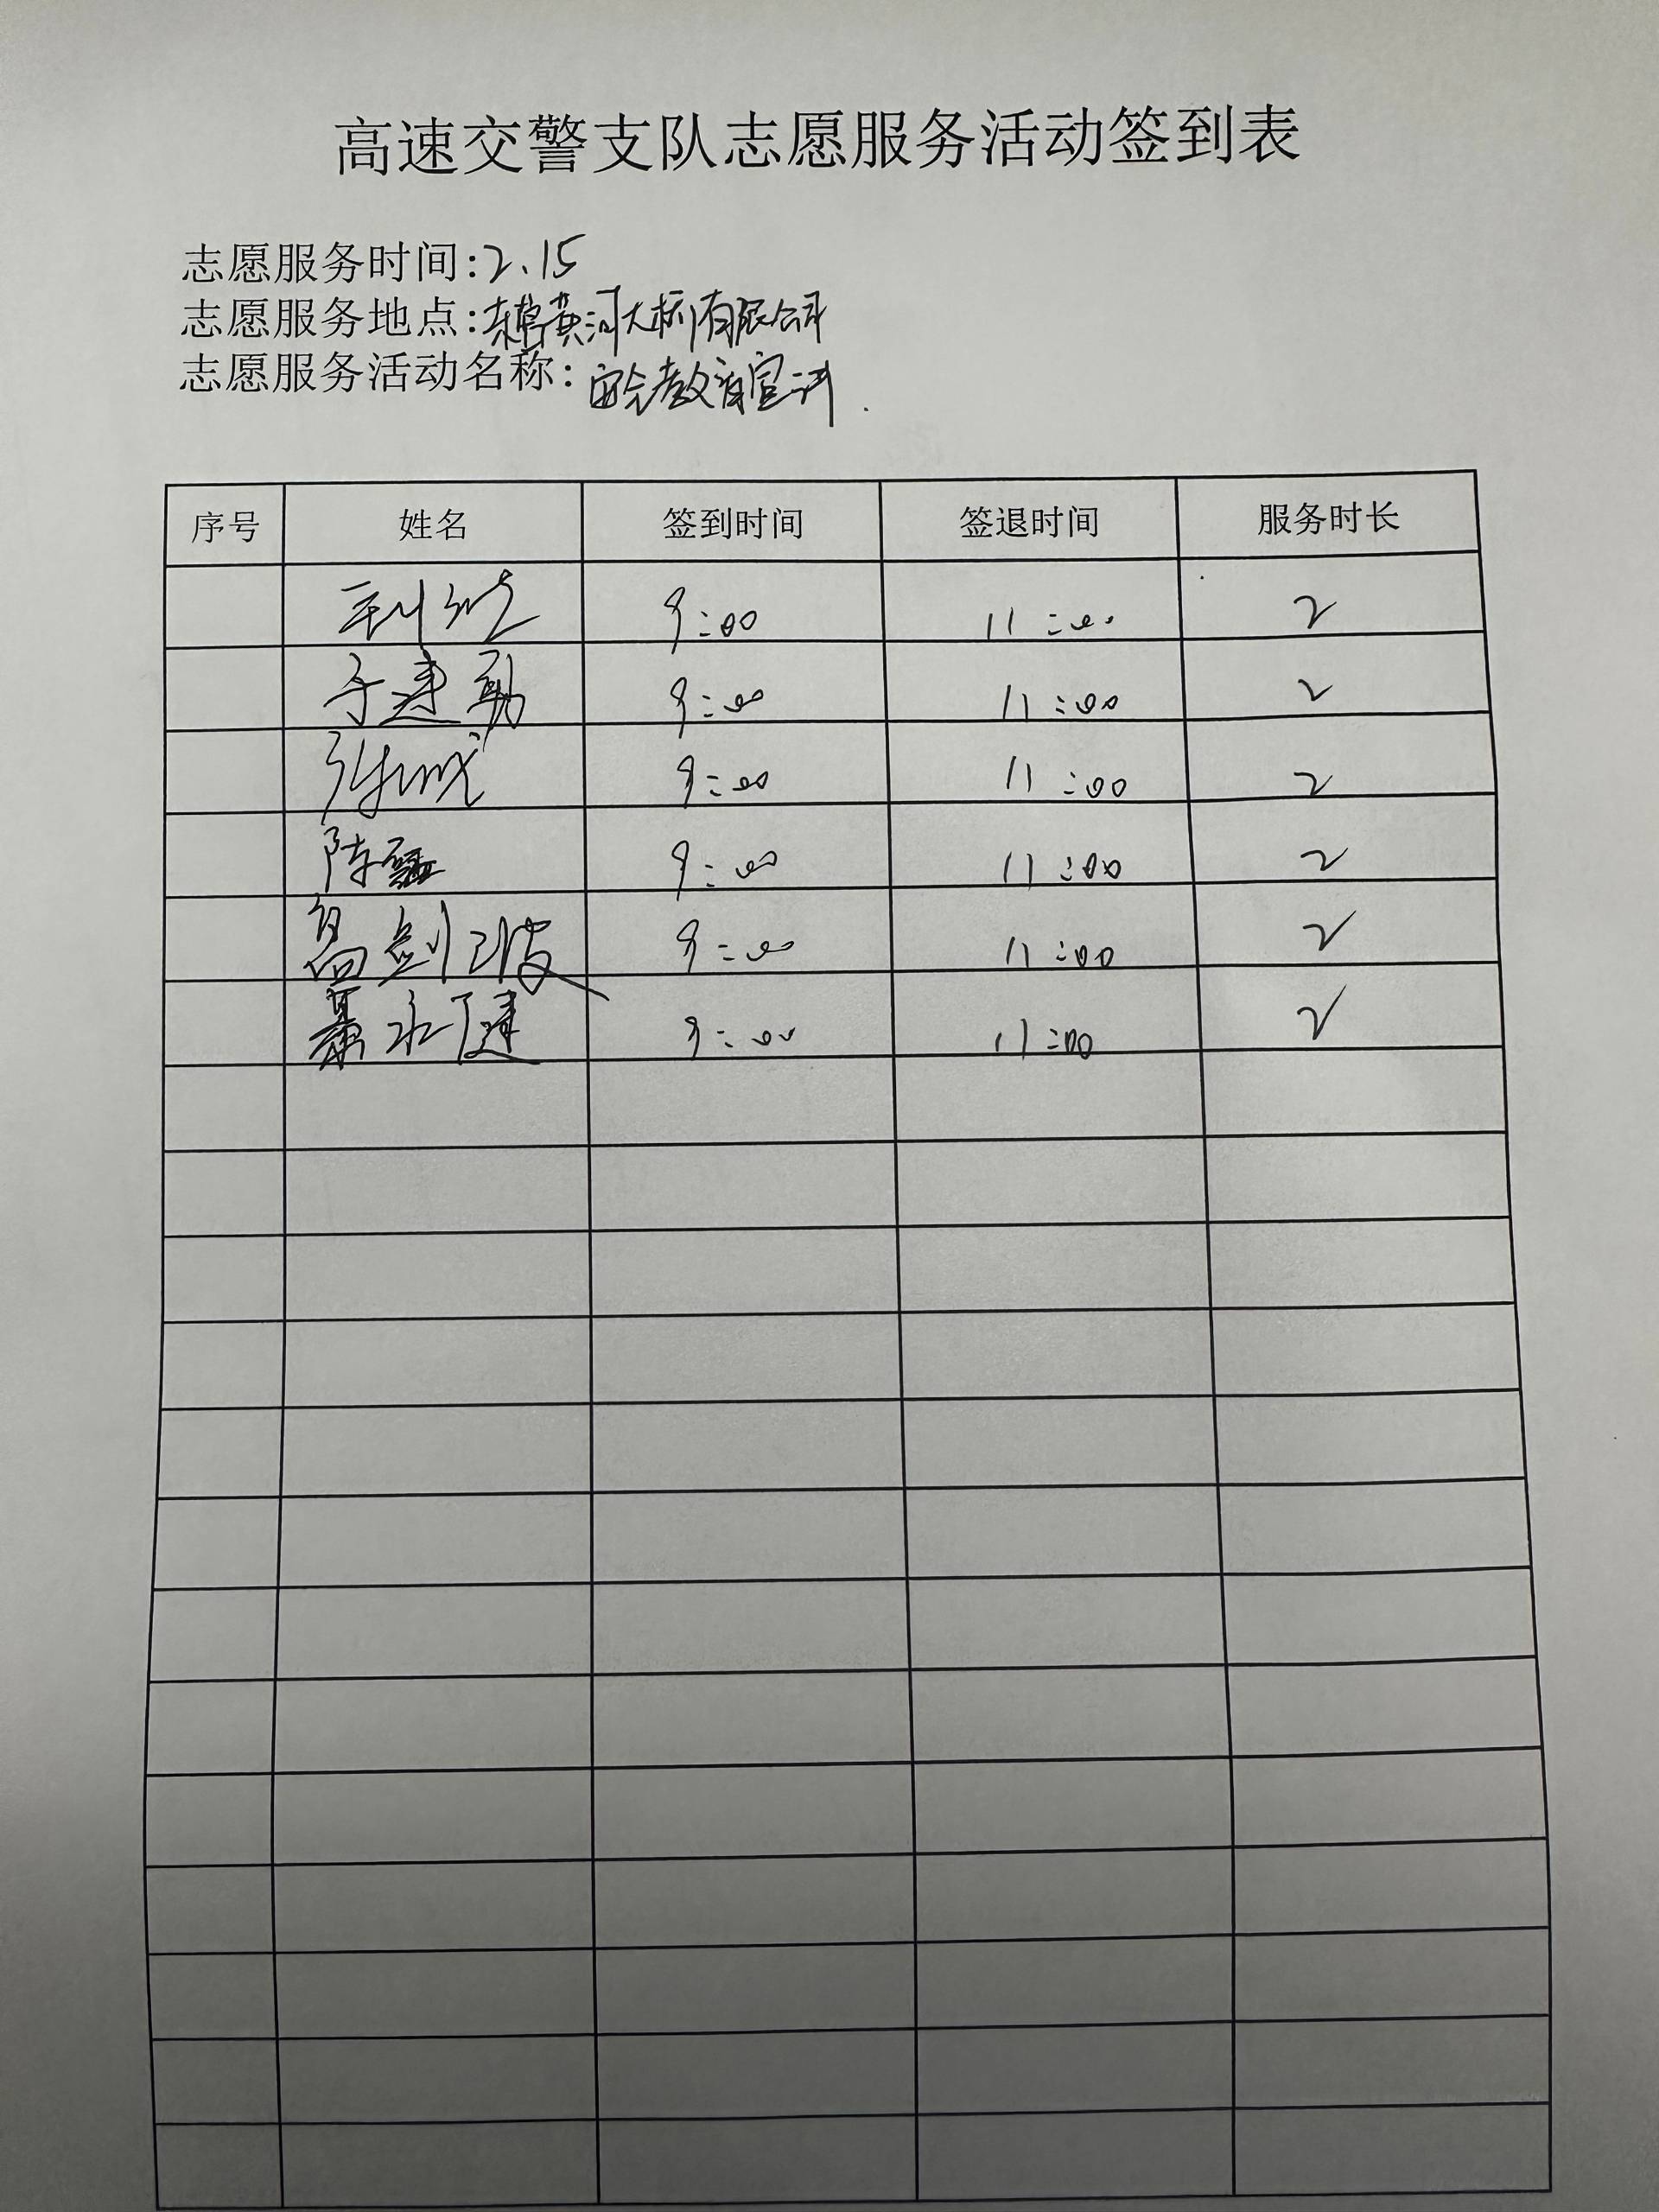 高速交警支队志愿服务活动签到表
志愿服务时间:2.15
志愿服务地点:黄河大桥有限公司
志愿服务活动名称:安全教育宣讲.
序号 姓名 签到时间 签退时间 服务时长
9:00 11:00 2
于建勇 9:00 11:00 2
9:00 11:00 2
陈 9:00 11:00 2
剑波 9:00 11:00 2
永健 9:00 11:00 2